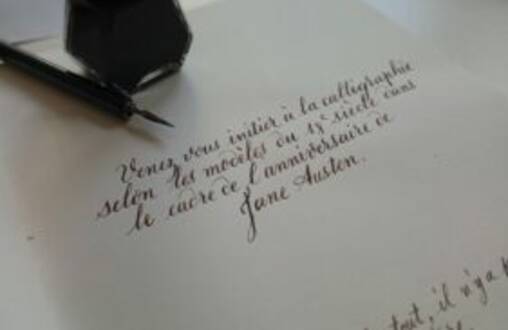 Venez vous initier à la calligraphie
selon les modèles du 18e siècle dans
le cadre de l'anniversaire de
Jane Austen.
tout, il n'y a